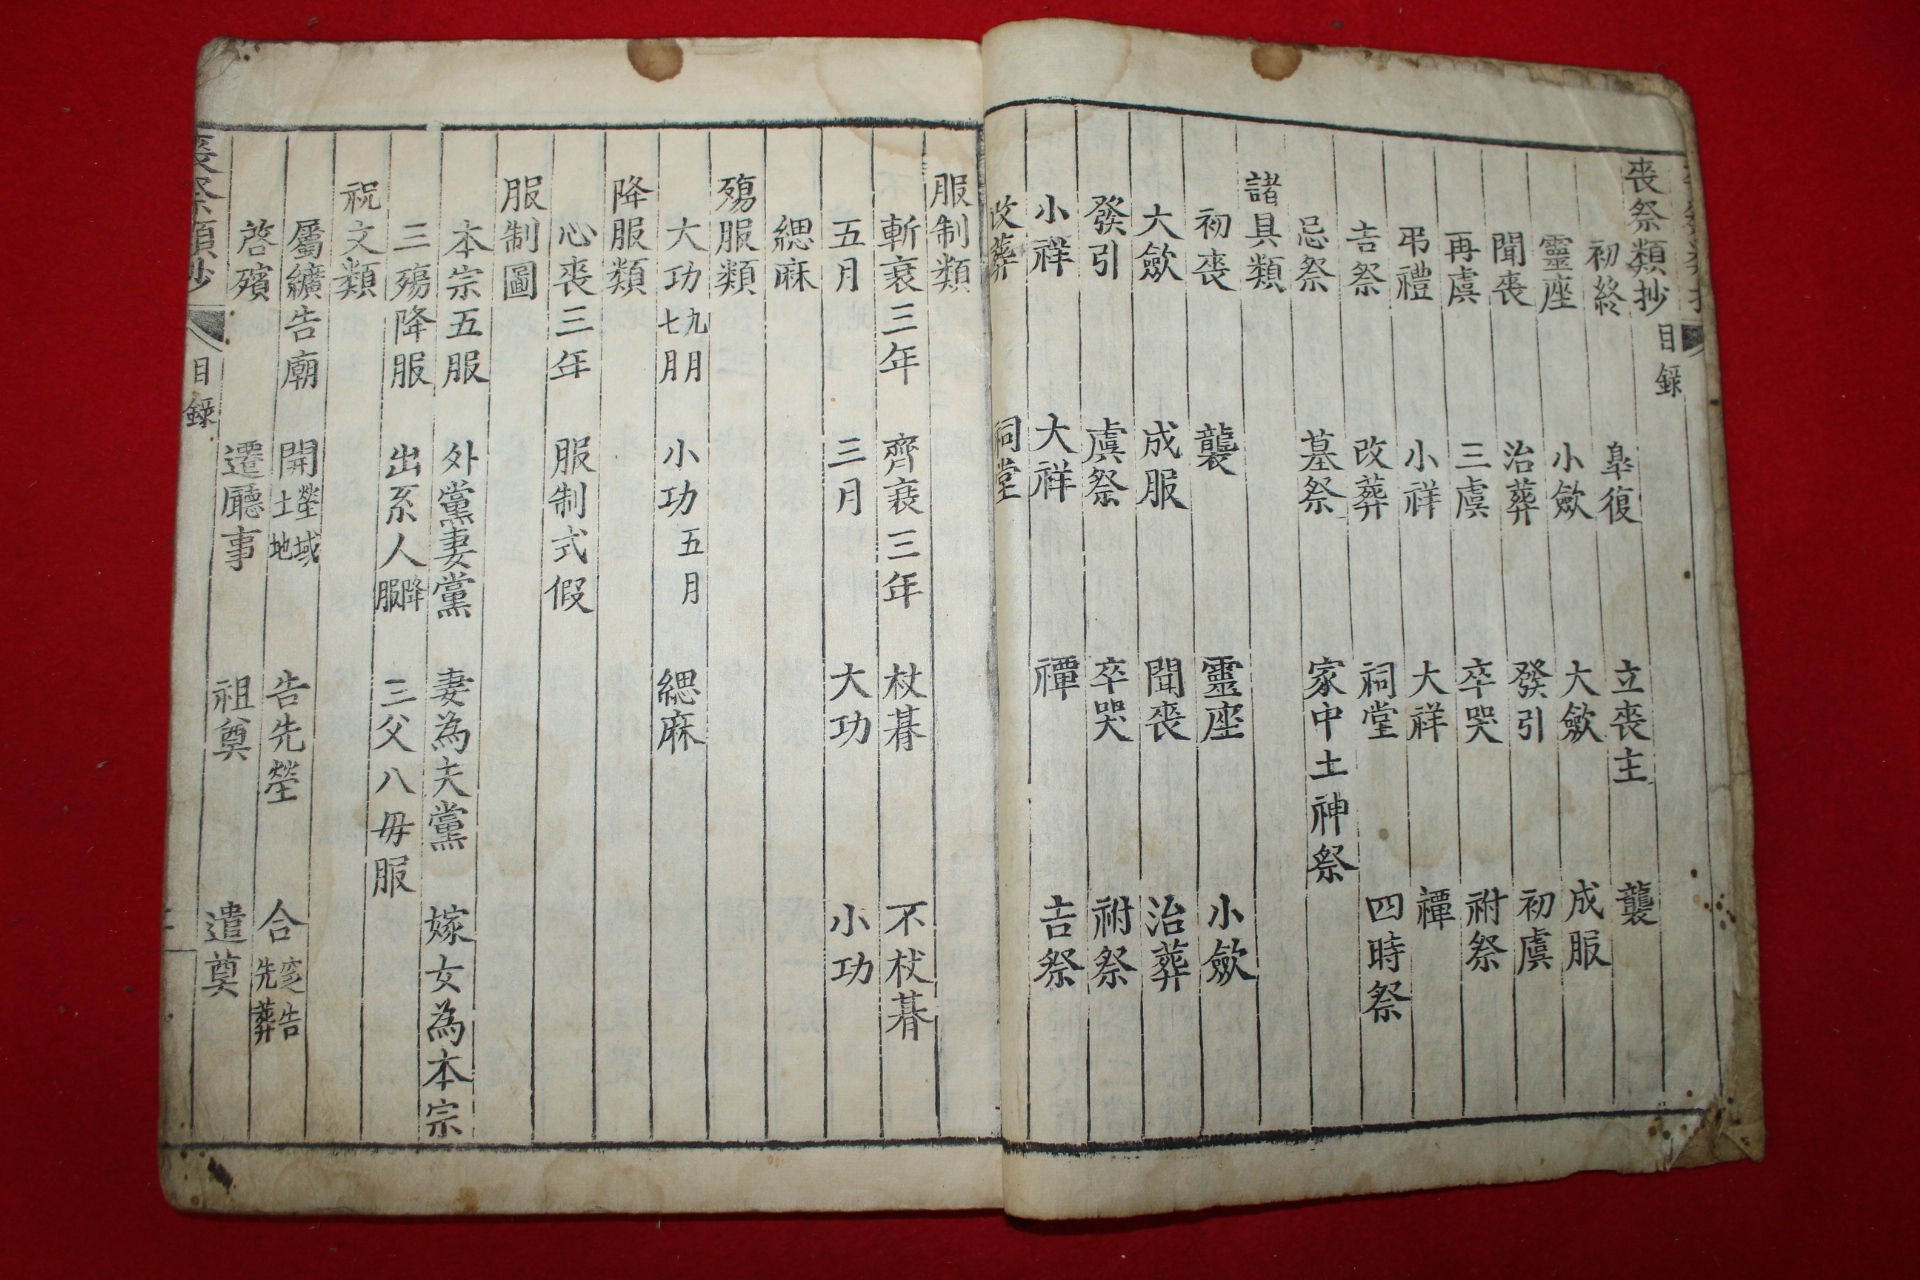 喪祭類抄目録
初終 臯復 立喪主 襲
靈座 小斂 大斂 成服
聞喪 治葬 發引 初虞
再虞 三虞 卒哭 祔祭
弔禮 小祥 大祥 禫
吉祭 改葬 祠堂 四時祭
忌祭 墓祭 家中土神祭
諸具類
初喪 襲 靈座 小斂
大斂 成服 聞喪 治葬
發引 虞祭 卒哭 祔祭
小祥 大祥 禫 吉祭
改葬 祠堂
服制類
斬衰三年 齊衰三年 杖朞 不杖朞
五月 三月 大功 小功
緦麻
殤服類
大功九月七月 小功五月 緦麻
降服類
心喪三年 服制式假
服制圖
本宗五服 外黨妻黨 妻為夫黨 嫁女為本宗
三殤降服 出系人降服 三父八毋服
祝文類
屬纊告廟 開塋域土地 告先塋 合窆告先葬
啓殯 遷廳事 祖奠 遣奠
喪祭類抄 目録